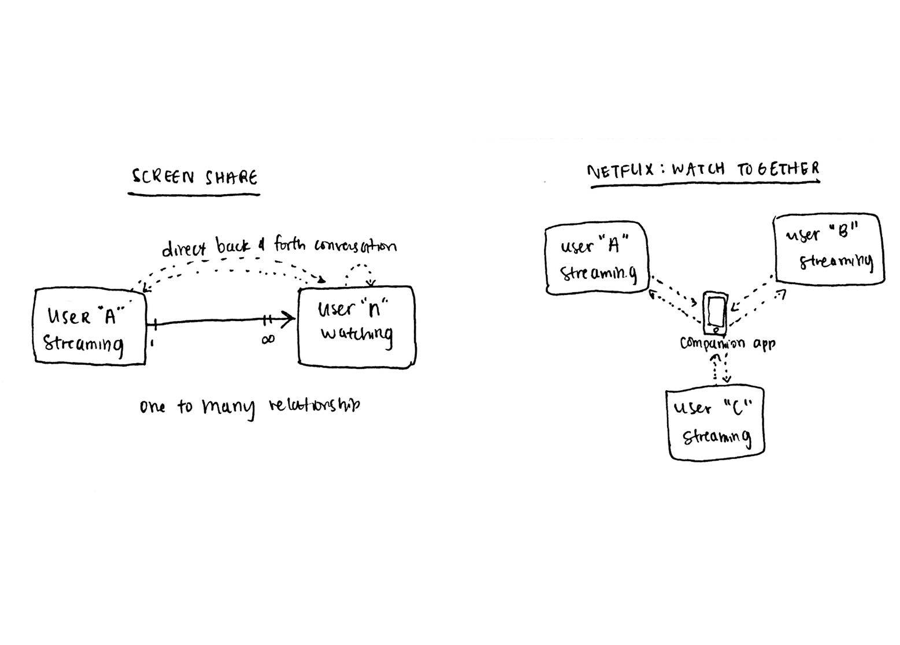 SCREEN SHARE
direct back & forth conversation
USER "A"
streaming
1
∞
user "n"
watching
one to many relationship
NETFLIX: WATCH TOGETHER
user "A"
streaming
user "B"
streaming
companion app
user "C"
streaming